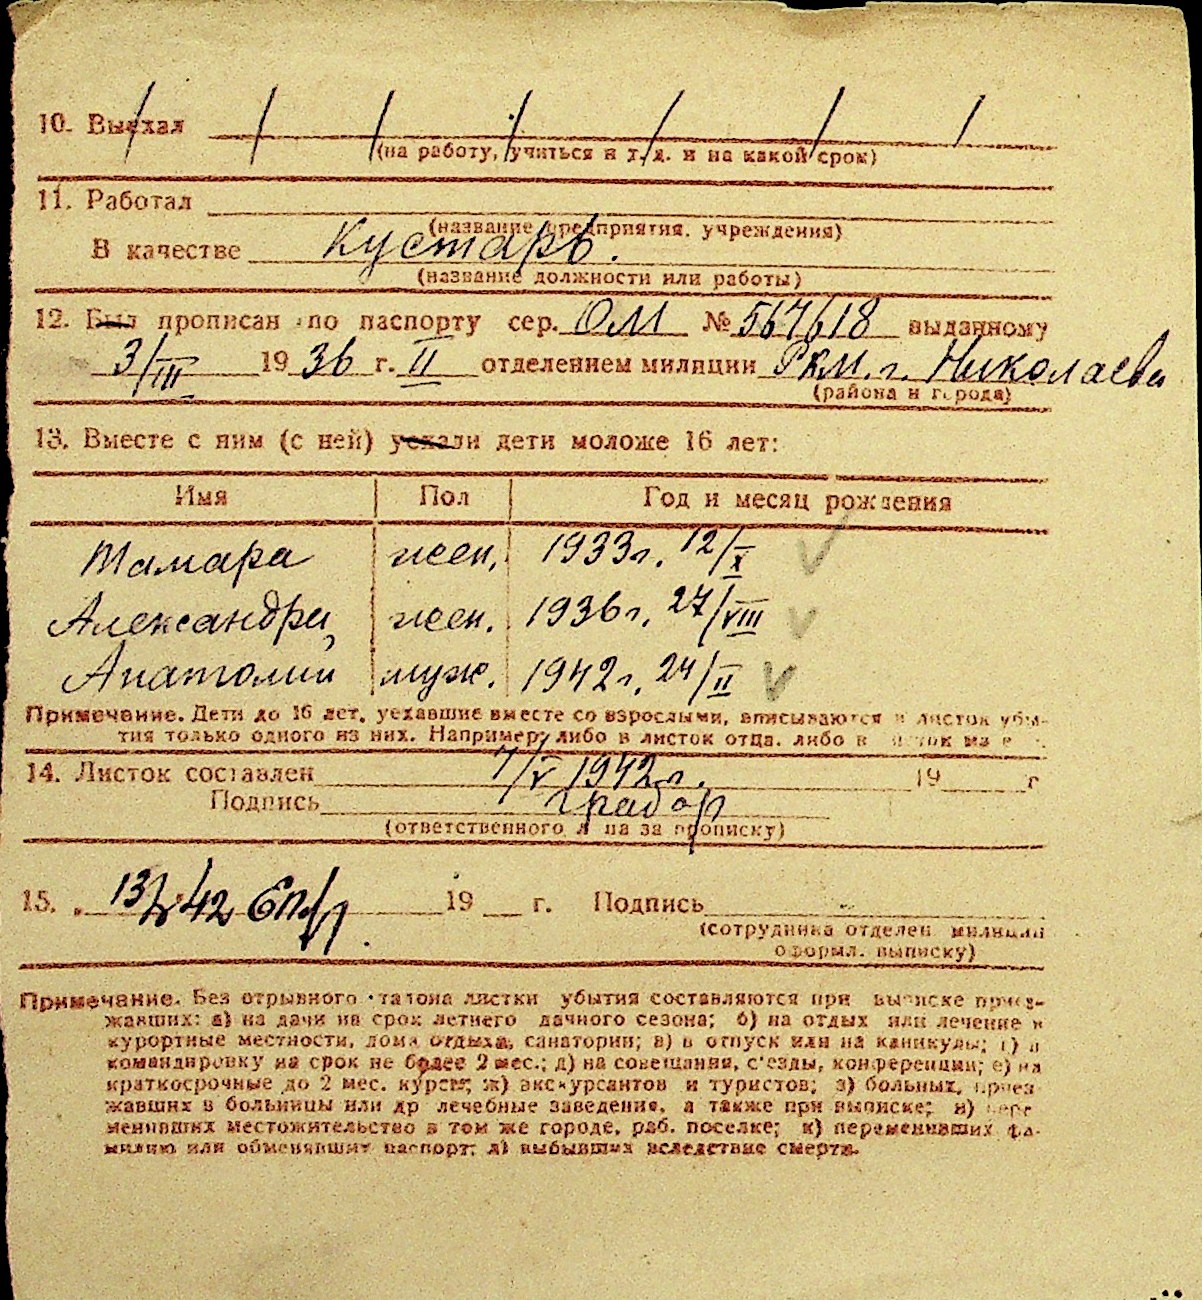 10. Выехал
(на работу, учиться и т. д. и на какой срок)
11. Работал
(название предприятия, учреждения)
В качестве кустарь.
(название должности или работы)
12. Был прописан по паспорту сер. ОМ № 567618 выданному
3/III 1936 г. II отделением милиции РКМ. г. Николаева
(района и города)
13. Вместе с ним (с ней) уехали дети моложе 16 лет:
Имя Пол Год и месяц рождения
Тамара жен. 1933г. 12/X
Александра жен. 1936г. 27/VIII
Анатолий муж. 1942г. 24/II
Примечание. Дети до 16 лет, уехавшие вместе со взрослыми, вписываются в листок убы-
тия только одного из них. Например: либо в листок отца, либо в листок
14. Листок составлен 7/V 1942г. 19 г
Подпись Грабор
(ответственного лица за прописку)
15. 13/V 42 19 г. Подпись
(сотрудника отделен. милиции
оформл. выписку)
Примечание. Без отрывного талона листки убытия составляются при выписке приез-
жавших: а) на дачи на срок летнего дачного сезона; б) на отдых или лечение в
курортные местности, дома отдыха, санатории; в) в отпуск или на каникулы; г) в
командировку на срок не более 2 мес.; д) на совещания, с'езды, конференции; е) на
краткосрочные до 2 мес. курсы; ж) экскурсантов и туристов; з) больных, приез-
жавших в больницы или др лечебные заведения, а также при выписке; и) пере-
менивших местожительство в том же городе, раб. поселке; к) переменивших фа-
милию или обменявших паспорт; л) выбывших вследствие смерти.